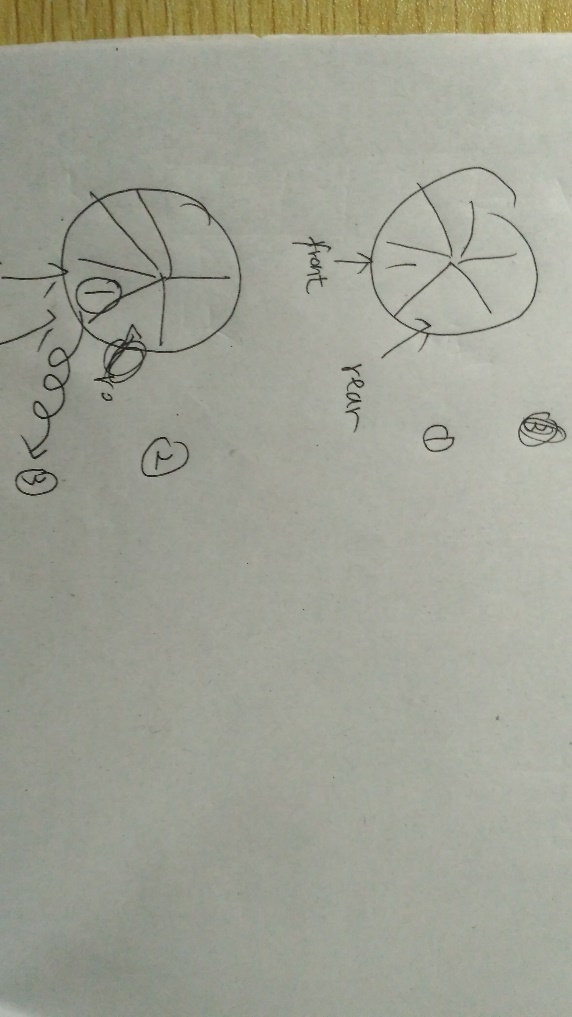 front
rear
①
②
①
③